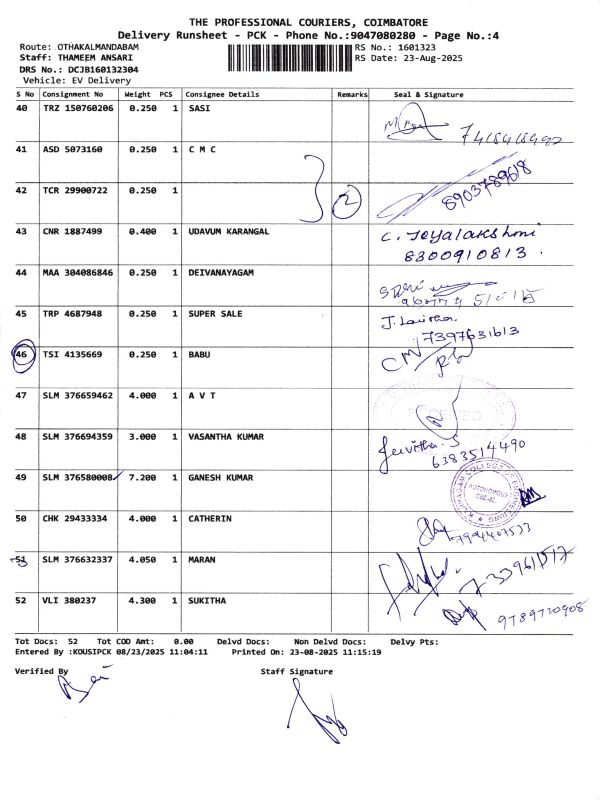 THE PROFESSIONAL COURIERS, COIMBATORE
Delivery Runsheet - PCK - Phone No.:9047080280 - Page No.:4
Route: .OTHAKALMANDABAM RS No.: 1601323
Staff: THAMEEM ANSARI RS Date: 23-Aug-2025
DRS No.: DCJB160132304
Vehicle: EV Delivery
S No Consignment No Weight PCS Consignee Details Remarks Seal & Signature
40 TRZ 150760206 0.250 1 SASI
41 ASD 5073160 0.250 1 C M C
42 TCR 29900722 0.250 1 2 8903789618
43 CNR 1887499 0.400 1 UDAVUM KARANGAL C. Jeyalakshmi
8300910813.
44 MAA 304086846 0.250 1 DEIVANAYAGAM
45 TRP 4687948 0.250 1 SUPER SALE
7397631613
46 TSI 4135669 0.250 1 BABU
47 SLM 376659462 4.000 1 A V T
48 SLM 376694359 3.000 1 VASANTHA KUMAR Jeevitha.S
6383514490
49 SLM 376580008 7.200 1 GANESH KUMAR
AUTONOMOUS
50 CHK 29433334 4.000 1 CATHERIN
51 SLM 376632337 4.050 1 MARAN
52 VLI 380237 4.300 1 SUKITHA 9789720908
Tot Docs: 52 Tot COD Amt: 0.00 Delvd Docs: Non Delvd Docs: Delvy Pts:
Entered By :KOUSIPCK 08/23/2025 11:04:11 Printed On: 23-08-2025 11:15:19
Verified By Staff Signature